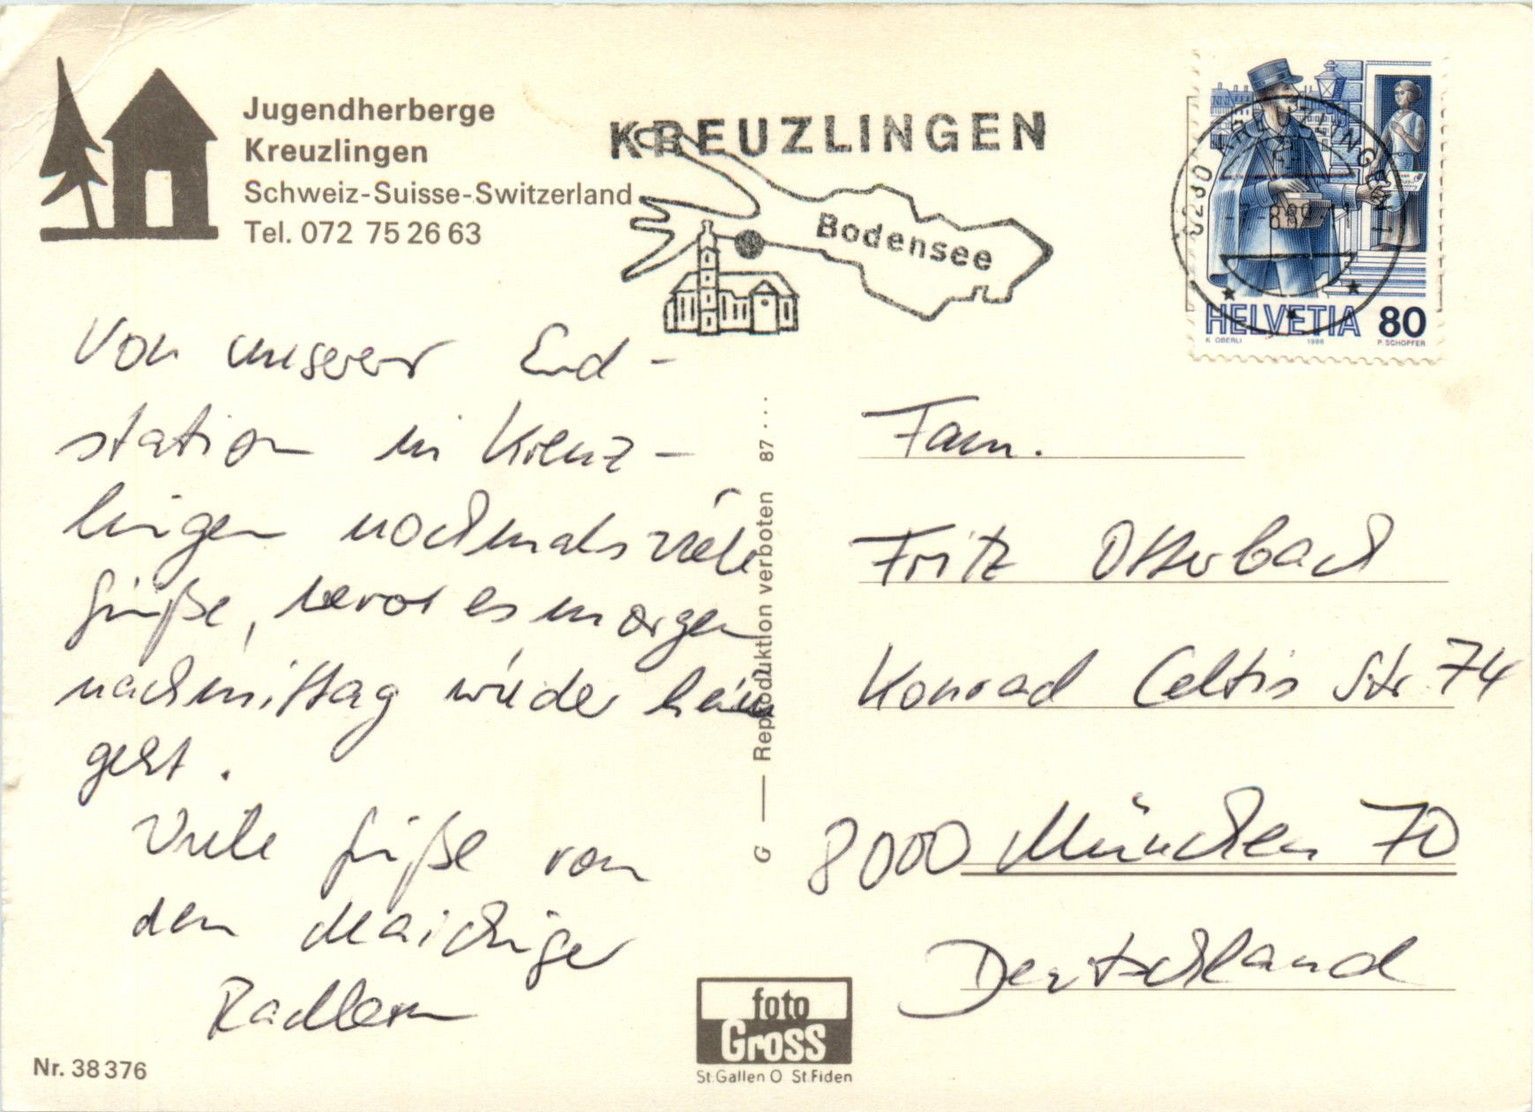 Jugendherberge
Kreuzlingen
Schweiz-Suisse-Switzerland
Tel. 072 75 26 63
KREUZLINGEN
Bodensee
8280 KREUZLINGEN 1
HELVETIA 80
K. OBERLI 1986 P. SCHOPFER
Von unserer End-
station in Kreuz-
lingen nochmals viele
Grüße, bevor es morgen
nachmittag wieder heim
geht.
Viele Grüße von
den Maichinger
Radlern
G — Reproduktion verboten 87...
Fam.
Fritz Otterbach
Konrad Celtis Str. 74
8000 München 70
Deutschland
foto
Gross
St.Gallen O St.Fiden
Nr. 38 376